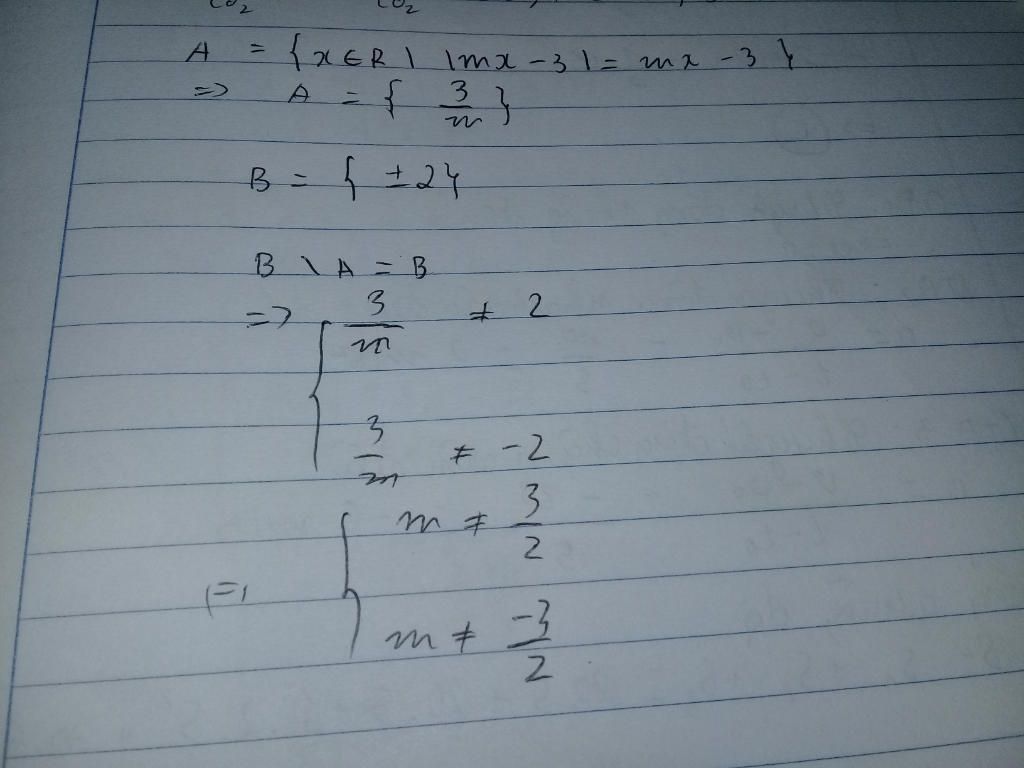 CO₂ CO₂
A = { x ∈ R \ |mx - 3| = mx - 3 }
=> A = { 3/m }
B = { ± 2 }
B \ A = B
=> { 3/m ≠ 2
3/m ≠ -2
(=) { m ≠ 3/2
m ≠ -3/2